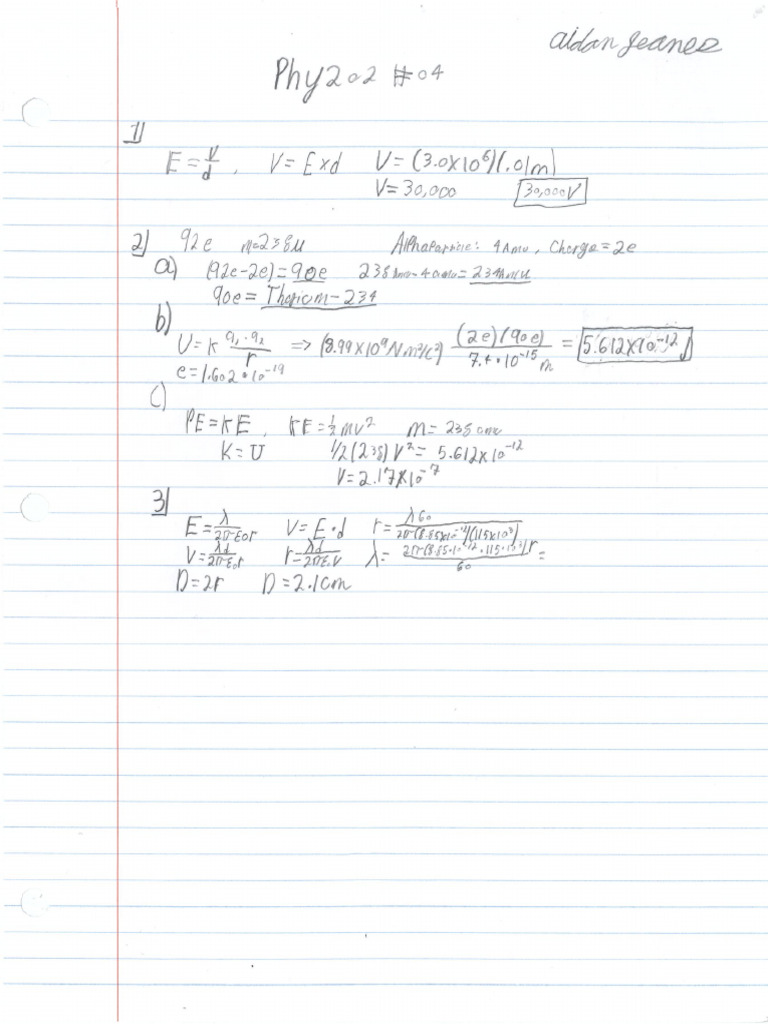 Aidan Jeanes
Phy 202 #04
1)
E = V/d , V = E x d V = (3.0x10^6)(.01m)
V = 30,000 30,000V
2) 92e m=238u Alphaparticle: 4amu, Charge = 2e
a) (92e-2e) = 90e 238amu-4amu = 234amu
90e = Thorium-234
b)
U = k q1·q2/r => (8.99x10^9 Nm²/c²) (2e)(90e)/7.4·10^-15 m = 5.612x10^-12 J
e = 1.602·10^-19
c)
PE = KE, KE = ½mv² m = 238amu
K = U 1/2(238)V² = 5.612x10^-12
V = 2.17x10^-7
3)
E = λ/2πε0r V = E·d r = λ60/2π(8.85x10^-12)(115x10^3)
V = λd/2πε0r r = λd/2πε0V λ = 2π(8.85·10^-12·115·10^3)r/60 =
D = 2r D = 2.1cm